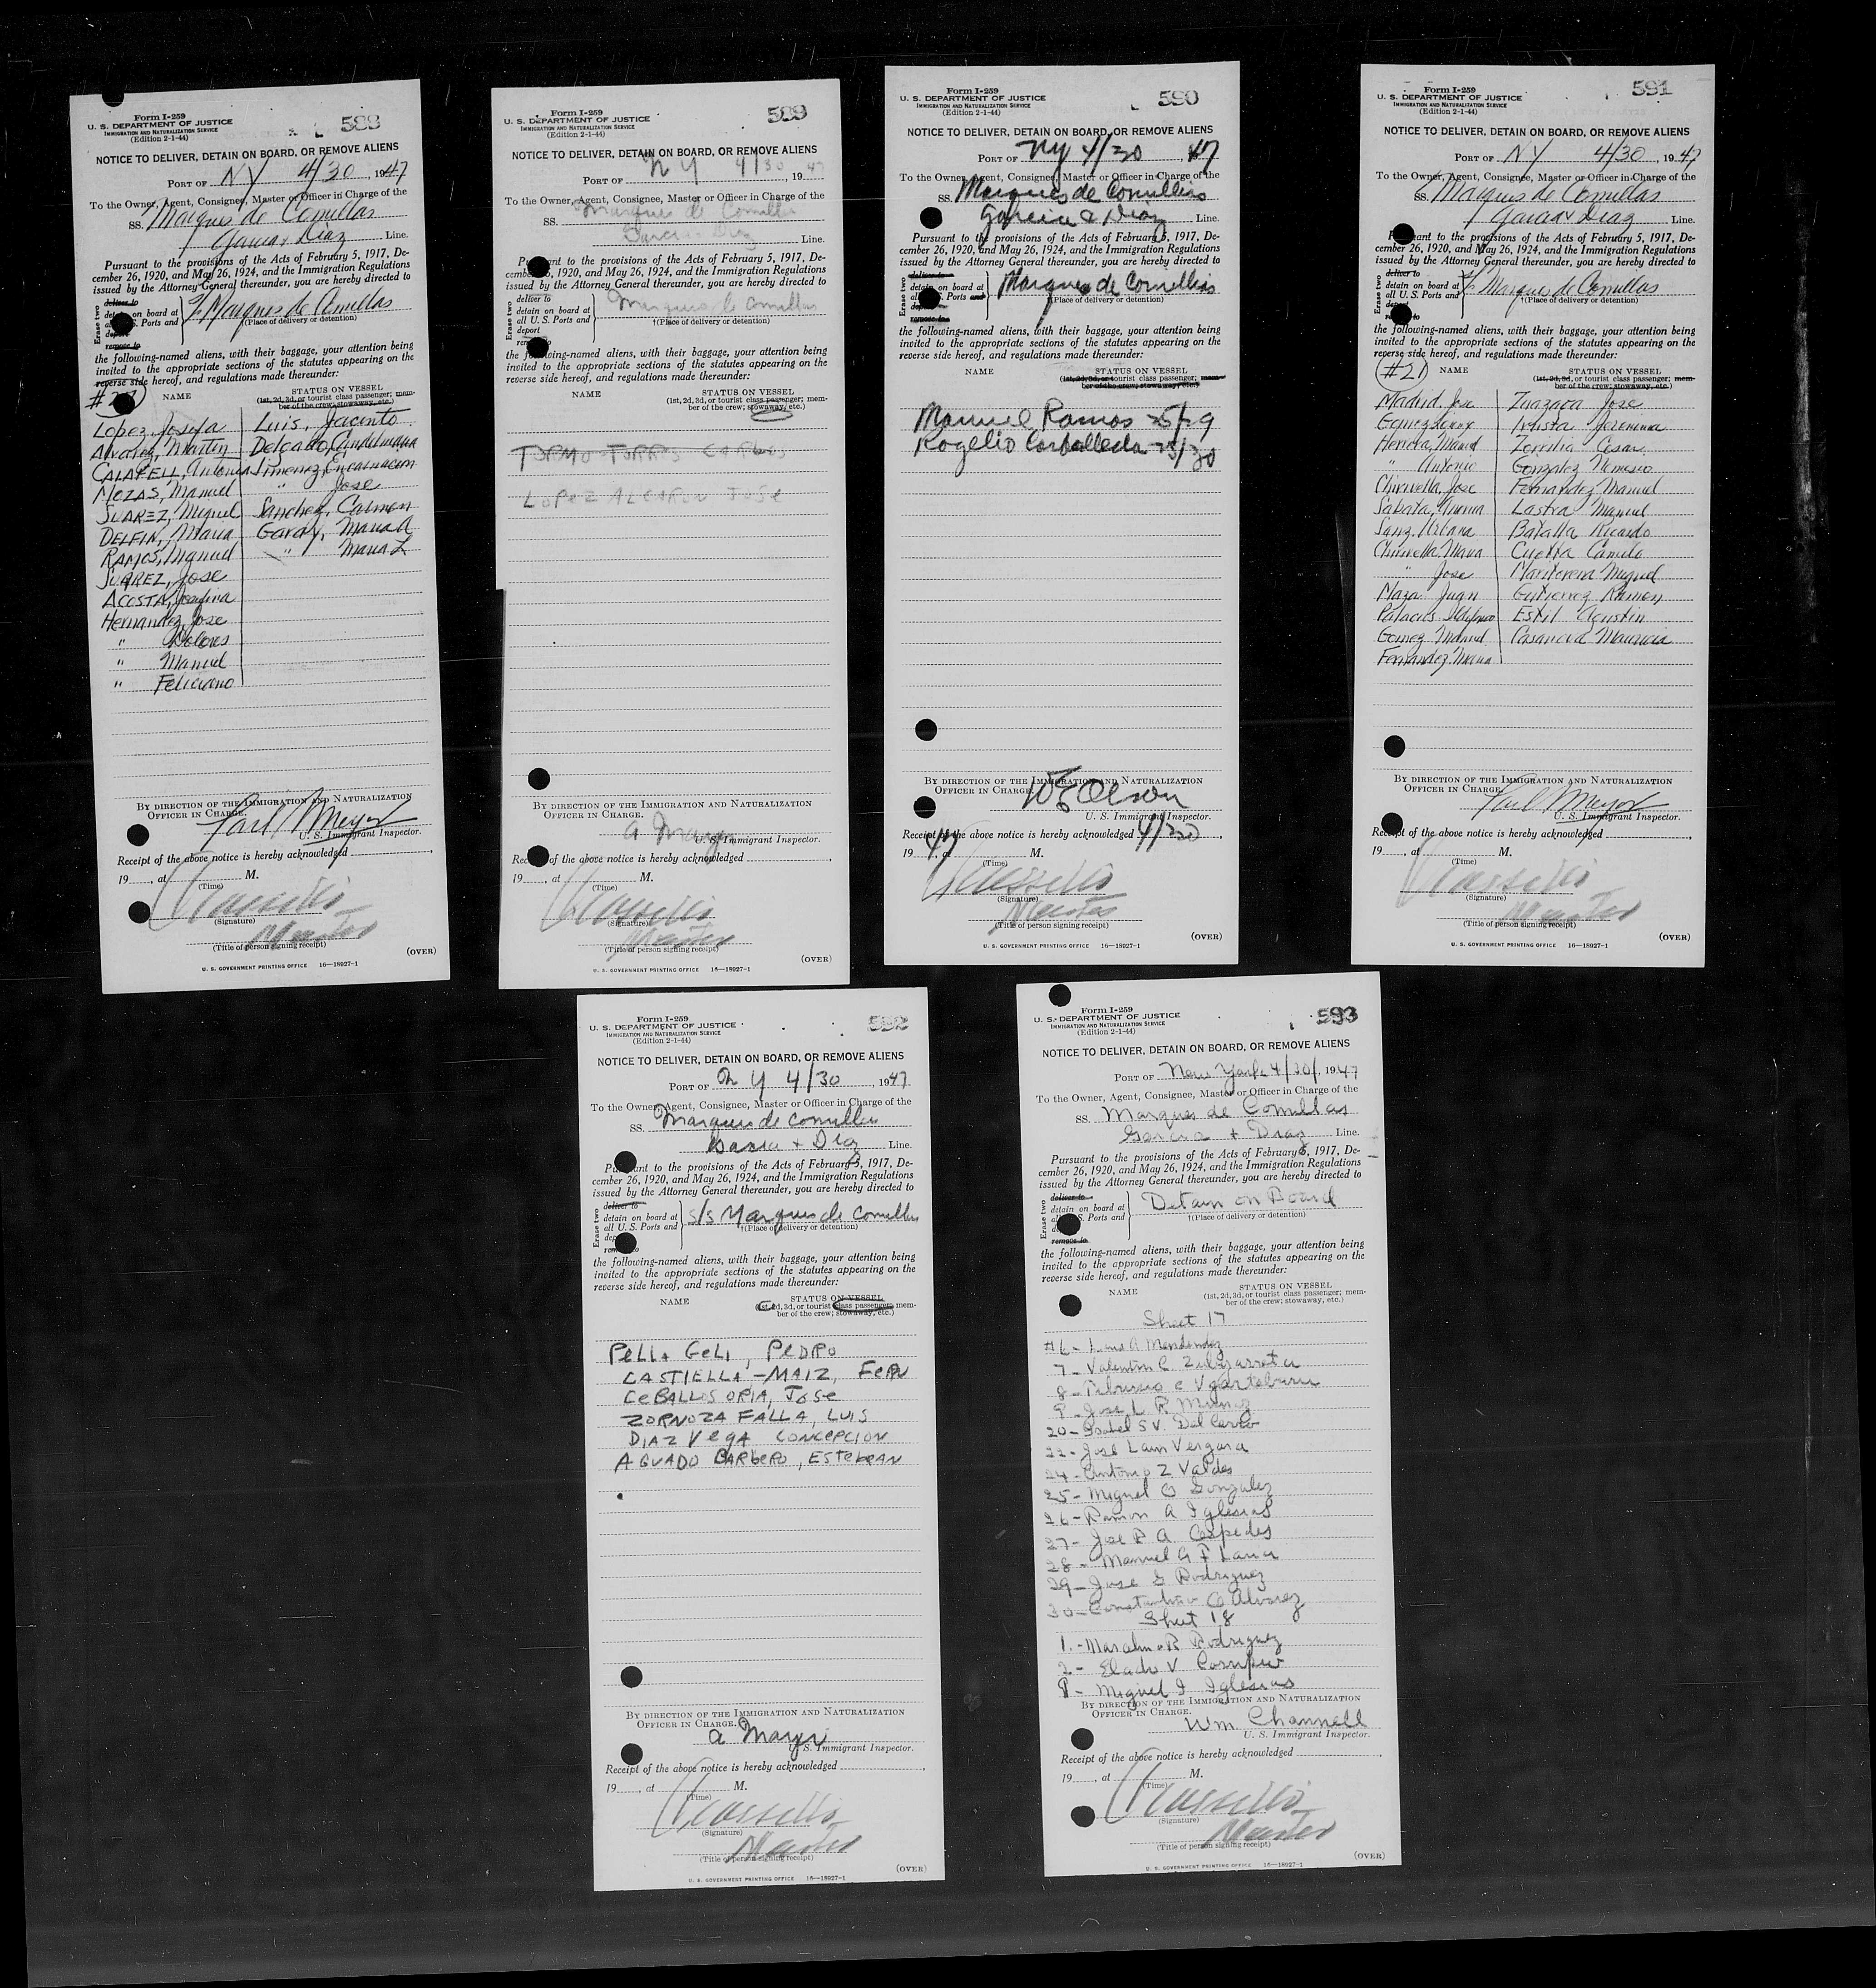 Form I-259
U. S. DEPARTMENT OF JUSTICE
IMMIGRATION AND NATURALIZATION SERVICE
(Edition 2-1-44)
588
NOTICE TO DELIVER, DETAIN ON BOARD, OR REMOVE ALIENS
PORT OF NY 4/30, 1947
To the Owner, Agent, Consignee, Master or Officer in Charge of the
SS. Marques de Comillas
Garcia & Diaz Line.
Pursuant to the provisions of the Acts of February 5, 1917, De-
cember 26, 1920, and May 26, 1924, and the Immigration Regulations
issued by the Attorney General thereunder, you are hereby directed to
Erase two
deliver to
detain on board at
all U. S. Ports and
deport
remove to
Marques de Comillas
(Place of delivery or detention)
the following-named aliens, with their baggage, your attention being
invited to the appropriate sections of the statutes appearing on the
reverse side hereof, and regulations made thereunder:
NAME STATUS ON VESSEL
(1st, 2d, 3d, or tourist class passenger; mem-
ber of the crew; stowaway, etc.)
Lopez, Josefa Luis, Jacinto
Alvarez, Martin Delgado, Candelaria
CALAFELL, Antonia Jimenez, Encarnacion
MOZAS, Manuel " Jose
SUAREZ, Miguel Sanchez, Carmen
DELFIN, Maria Garay, Maria A
RAMOS, Manuel " Maria L
SUAREZ, Jose
ACOSTA, Josefina
Hernandez, Jose
" Dolores
" Manuel
" Feliciano
BY DIRECTION OF THE IMMIGRATION AND NATURALIZATION
OFFICER IN CHARGE.
Carl Meyer
U. S. Immigrant Inspector.
Receipt of the above notice is hereby acknowledged
19, at M.
(Time)
(Signature)
Master
(Title of person signing receipt)
(OVER)
U. S. GOVERNMENT PRINTING OFFICE 16—18927-1
Form I-259
U. S. DEPARTMENT OF JUSTICE
IMMIGRATION AND NATURALIZATION SERVICE
(Edition 2-1-44)
589
NOTICE TO DELIVER, DETAIN ON BOARD, OR REMOVE ALIENS
PORT OF N Y 4/30, 1947
To the Owner, Agent, Consignee, Master or Officer in Charge of the
SS. Marques de Comillas
Garcia & Diaz Line.
Pursuant to the provisions of the Acts of February 5, 1917, De-
cember 26, 1920, and May 26, 1924, and the Immigration Regulations
issued by the Attorney General thereunder, you are hereby directed to
Erase two
deliver to
detain on board at
all U. S. Ports and
deport
remove to
Marques de Comillas
†(Place of delivery or detention)
the following-named aliens, with their baggage, your attention being
invited to the appropriate sections of the statutes appearing on the
reverse side hereof, and regulations made thereunder:
NAME STATUS ON VESSEL
(1st, 2d, 3d, or tourist class passenger; mem-
ber of the crew; stowaway, etc.)
TORMO-TORRES CARLOS
LOPEZ ALCARON JOSE
BY DIRECTION OF THE IMMIGRATION AND NATURALIZATION
OFFICER IN CHARGE.
U. S. Immigrant Inspector.
Receipt of the above notice is hereby acknowledged
19, at M.
(Time)
(Signature)
Master
(Title of person signing receipt)
(OVER)
U. S. GOVERNMENT PRINTING OFFICE 16—18927-1
Form I-259
U. S. DEPARTMENT OF JUSTICE
IMMIGRATION AND NATURALIZATION SERVICE
(Edition 2-1-44)
590
NOTICE TO DELIVER, DETAIN ON BOARD, OR REMOVE ALIENS
PORT OF NY 4/30, 47
To the Owner, Agent, Consignee, Master or Officer in Charge of the
SS. Marques de Comillas
Garcia & Diaz Line.
Pursuant to the provisions of the Acts of February 5, 1917, De-
cember 26, 1920, and May 26, 1924, and the Immigration Regulations
issued by the Attorney General thereunder, you are hereby directed to
Erase two
deliver to
detain on board at
all U. S. Ports and
remove to
Marques de Comillas
(Place of delivery or detention)
the following-named aliens, with their baggage, your attention being
invited to the appropriate sections of the statutes appearing on the
reverse side hereof, and regulations made thereunder:
NAME STATUS ON VESSEL
(1st, 2d, 3d, or tourist class passenger; mem-
ber of the crew; stowaway, etc.)
Manuel Ramos 25/29
Rogelio Carballeda 25/30
BY DIRECTION OF THE IMMIGRATION AND NATURALIZATION
OFFICER IN CHARGE.
W E Olson
U. S. Immigrant Inspector.
Receipt of the above notice is hereby acknowledged 4/30,
1947, at M.
(Time)
(Signature)
Master
(Title of person signing receipt)
(OVER)
U. S. GOVERNMENT PRINTING OFFICE 16—18927-1
Form I-259
U. S. DEPARTMENT OF JUSTICE
IMMIGRATION AND NATURALIZATION SERVICE
(Edition 2-1-44)
591
NOTICE TO DELIVER, DETAIN ON BOARD, OR REMOVE ALIENS
PORT OF NY 4/30, 1947
To the Owner, Agent, Consignee, Master or Officer in Charge of the
SS. Marques de Comillas
Garcia & Diaz Line.
Pursuant to the provisions of the Acts of February 5, 1917, De-
cember 26, 1920, and May 26, 1924, and the Immigration Regulations
issued by the Attorney General thereunder, you are hereby directed to
Erase two
deliver to
detain on board at
all U. S. Ports and
deport
remove to
Marques de Comillas
(Place of delivery or detention)
the following-named aliens, with their baggage, your attention being
invited to the appropriate sections of the statutes appearing on the
reverse side hereof, and regulations made thereunder:
#21 NAME STATUS ON VESSEL
(1st, 2d, 3d, or tourist class passenger; mem-
ber of the crew; stowaway, etc.)
Madrid, Jose Jose
Gomez
Herrera, Manuel Zorrilla Cesar
" Antonio Gonzalez Nemesio
Chirivella, Jose Fernandez Manuel
Sabata, Lastra Manuel
Sanz, Urbana Batalla Ricardo
Chirivella, Maria Cuetta Camilo
" Jose Miguel
Maza Juan Gutierrez Ramon
Palacios Ildefonso Estil Agustin
Gomez Manuel Casanova Mauricia
Fernandez Maria
BY DIRECTION OF THE IMMIGRATION AND NATURALIZATION
OFFICER IN CHARGE.
Carl Meyer
U. S. Immigrant Inspector.
Receipt of the above notice is hereby acknowledged
19, at M.
(Time)
(Signature)
Master
(Title of person signing receipt)
(OVER)
U. S. GOVERNMENT PRINTING OFFICE 16—18927-1
Form I-259
U. S. DEPARTMENT OF JUSTICE
IMMIGRATION AND NATURALIZATION SERVICE
(Edition 2-1-44)
592
NOTICE TO DELIVER, DETAIN ON BOARD, OR REMOVE ALIENS
PORT OF N Y 4/30, 1947
To the Owner, Agent, Consignee, Master or Officer in Charge of the
SS. Marques de Comillas
Garcia + Diaz Line.
Pursuant to the provisions of the Acts of February 5, 1917, De-
cember 26, 1920, and May 26, 1924, and the Immigration Regulations
issued by the Attorney General thereunder, you are hereby directed to
Erase two
deliver to
detain on board at
all U. S. Ports and
deport
remove to
S/S Marques de Comillas
†(Place of delivery or detention)
the following-named aliens, with their baggage, your attention being
invited to the appropriate sections of the statutes appearing on the
reverse side hereof, and regulations made thereunder:
NAME STATUS ON VESSEL
(1st, 2d, 3d, or tourist class passenger; mem-
ber of the crew; stowaway, etc.)
PELLA GELI, PEDRO
CASTIELLA-MAIZ, FERN
CEBALLOS ORIA, JOSE
ZORNOZA FALLA, LUIS
DIAZ VEGA CONCEPCION
AGUADO BARBERO, ESTEBAN
BY DIRECTION OF THE IMMIGRATION AND NATURALIZATION
OFFICER IN CHARGE.
U. S. Immigrant Inspector.
Receipt of the above notice is hereby acknowledged
19, at M.
(Time)
(Signature)
Master
(Title of person signing receipt)
(OVER)
U. S. GOVERNMENT PRINTING OFFICE 16—18927-1
Form I-259
U. S. DEPARTMENT OF JUSTICE
IMMIGRATION AND NATURALIZATION SERVICE
(Edition 2-1-44)
593
NOTICE TO DELIVER, DETAIN ON BOARD, OR REMOVE ALIENS
PORT OF New York 4/30/, 1947
To the Owner, Agent, Consignee, Master or Officer in Charge of the
SS. Marques de Comillas
Garcia + Diaz Line.
Pursuant to the provisions of the Acts of February 5, 1917, De-
cember 26, 1920, and May 26, 1924, and the Immigration Regulations
issued by the Attorney General thereunder, you are hereby directed to
Erase two
deliver to
detain on board at
all U. S. Ports and
remove to
Detain on Board
†(Place of delivery or detention)
the following-named aliens, with their baggage, your attention being
invited to the appropriate sections of the statutes appearing on the
reverse side hereof, and regulations made thereunder:
NAME STATUS ON VESSEL
(1st, 2d, 3d, or tourist class passenger; mem-
ber of the crew; stowaway, etc.)
Sheet 17
#6- Luis A Mendendez
7- Valentin
8-
9- Jose L R Muniz
20- Isabel S V. Del Cerro
22- Jose Lain Vergara
24- Antonio Z Valdes
25- Miguel O Gonzalez
26- Ramon A Iglesias
27- Jose R A Cespedes
28- Manuel G F Lana
29- Jose G Rodriguez
30- Constantino C Alvarez
Sheet 18
1.- R Rodriguez
2- Eladio V
8- Miguel I Iglesias
BY DIRECTION OF THE IMMIGRATION AND NATURALIZATION
OFFICER IN CHARGE.
Wm Channell
U. S. Immigrant Inspector.
Receipt of the above notice is hereby acknowledged
19, at M.
(Time)
(Signature)
Master
(Title of person signing receipt)
(OVER)
U. S. GOVERNMENT PRINTING OFFICE 16—18927-1